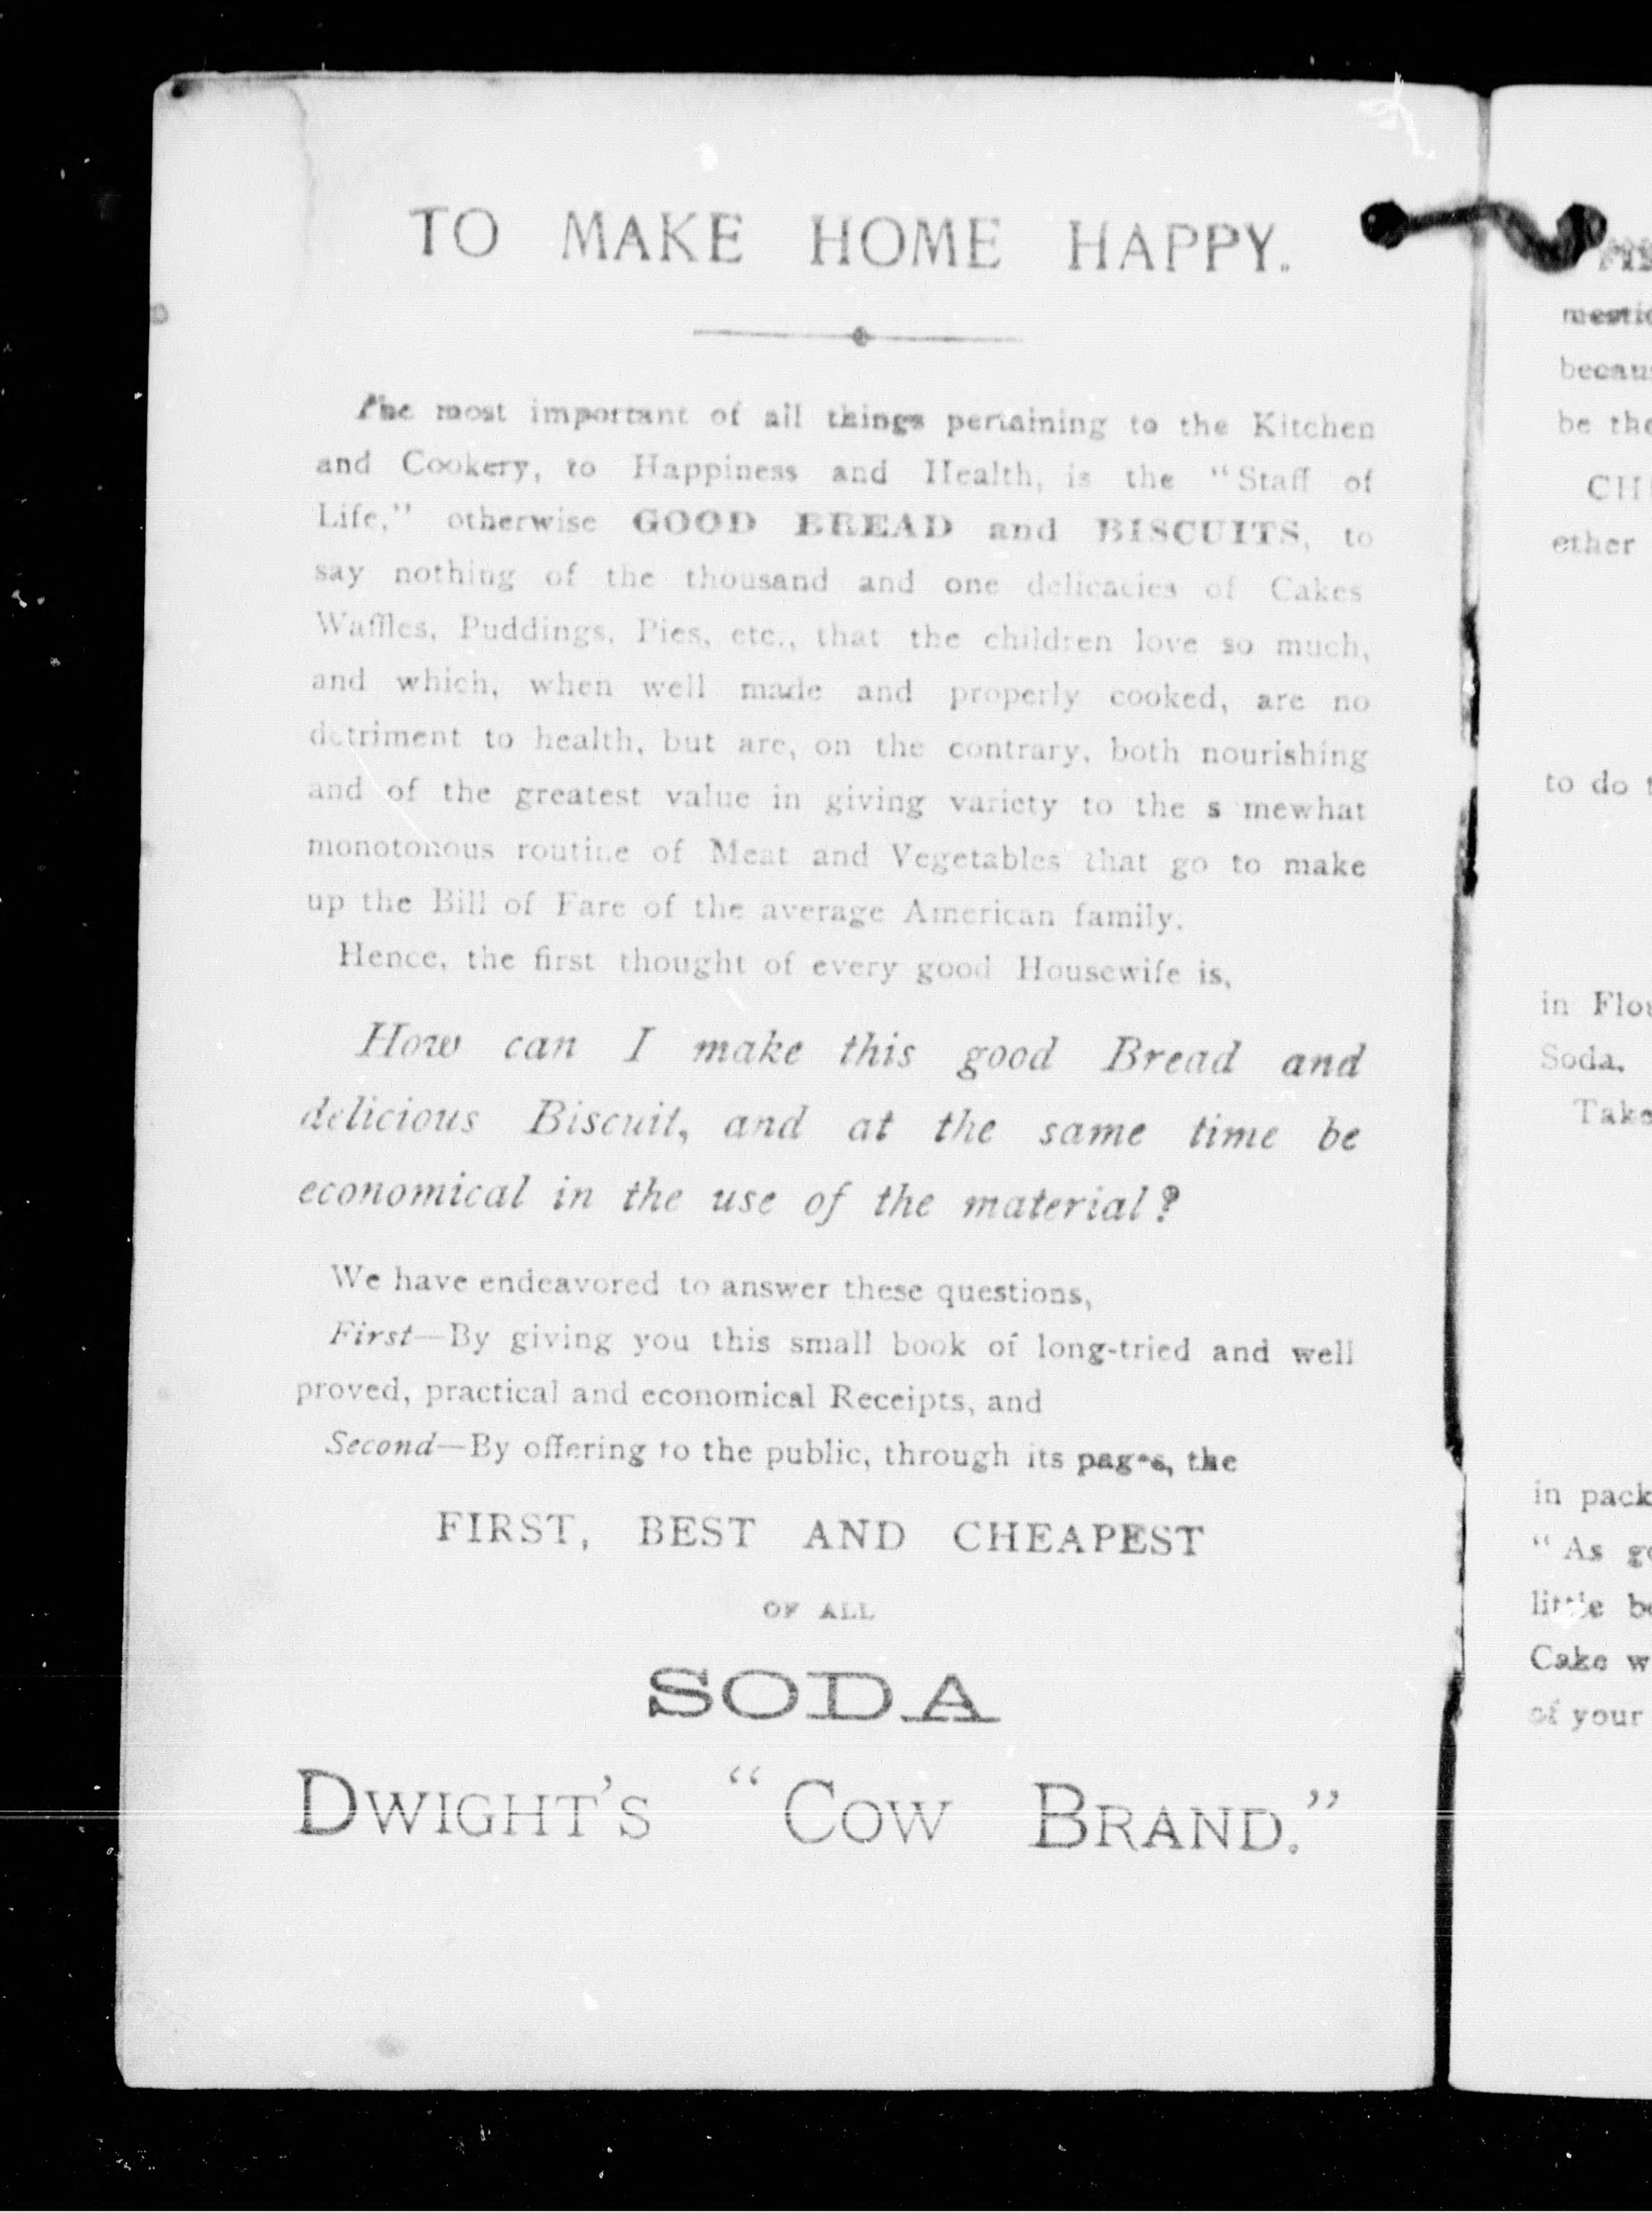 TO MAKE HOME HAPPY.
The most important of all things pertaining to the Kitchen
and Cookery, to Happiness and Health, is the “Staff of
Life,” otherwise GOOD BREAD and BISCUITS, to
say nothing of the thousand and one delicacies of Cakes
Waffles, Puddings, Pies, etc., that the children love so much,
and which, when well made and properly cooked, are no
detriment to health, but are, on the contrary, both nourishing
and of the greatest value in giving variety to the s mewhat
monotonous routine of Meat and Vegetables that go to make
up the Bill of Fare of the average American family.
Hence, the first thought of every good Housewife is,
How can I make this good Bread and
delicious Biscuit, and at the same time be
economical in the use of the material?
We have endeavored to answer these questions,
First—By giving you this small book of long-tried and well
proved, practical and economical Receipts, and
Second—By offering to the public, through its pages, the
FIRST, BEST AND CHEAPEST
OF ALL
SODA
DWIGHT'S “COW BRAND.”
be
ether
to do
in
Soda.
in
“As
little
Cake
of your